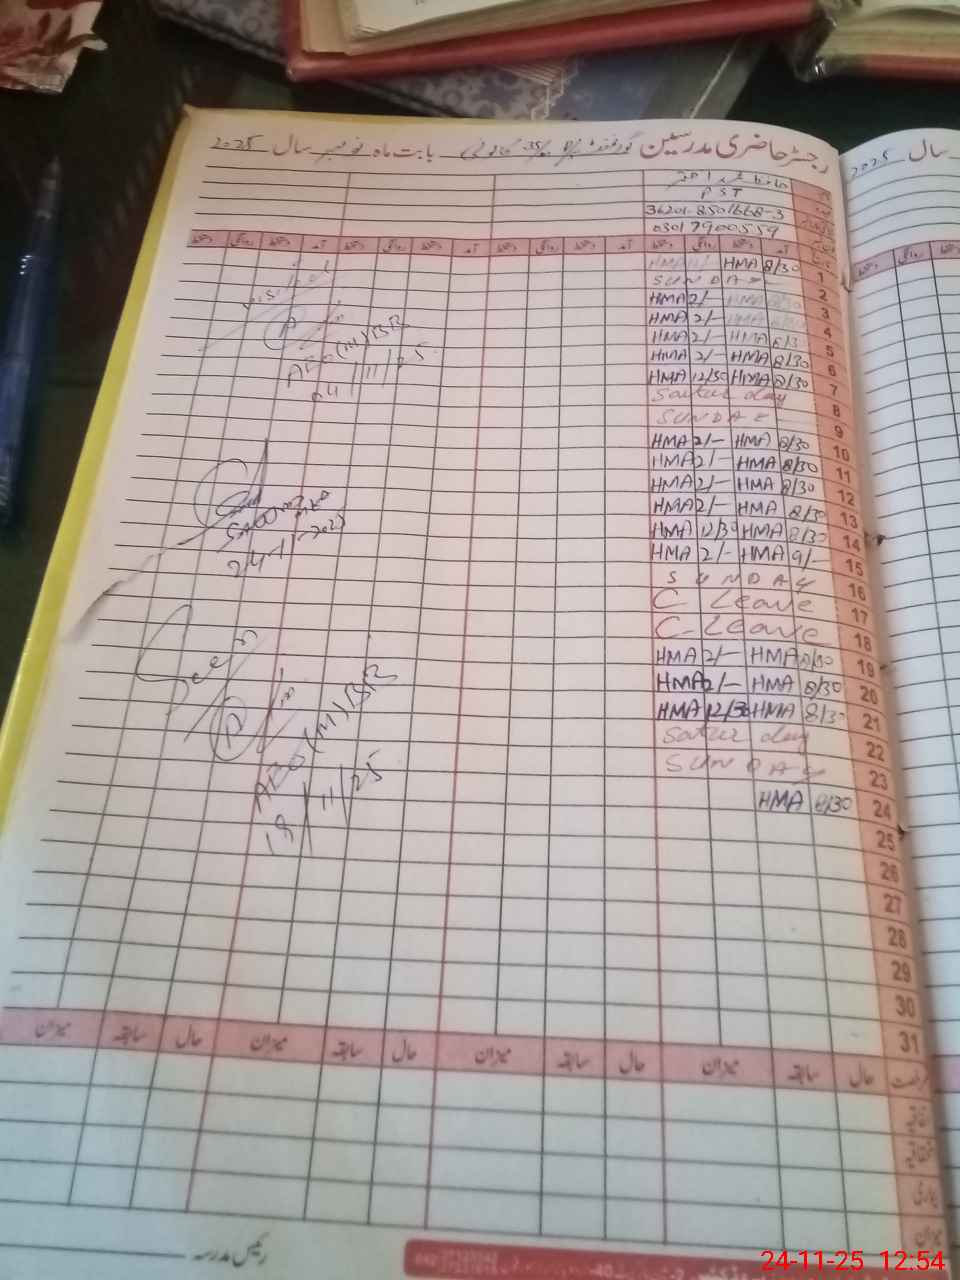 رجسٹر حاضری مدرسین گورنمنٹ بابت ماہ نومبر سال 2025
سال 2025
PST
36201-8501668-3
03017900559
دستخط روانگی دستخط آمد دستخط روانگی دستخط آمد دستخط روانگی دستخط آمد
HMA HMA 8/30 1
SUNDAY 2
HMA 2/- HMA 8/30 3
HMA 2/- HMA 4
HMA 2/- HMA 8/3 5
HMA 2/- HMA 8/30 6
HMA 12/30 HMA 8/30 7
Satur day 8
SUNDAY 9
HMA 2/- HMA 8/30 10
HMA 2/- HMA 8/30 11
HMA 2/- HMA 8/30 12
HMA 2/- HMA 8/30 13
HMA 12/30 HMA 8/30 14
HMA 2/- HMA 9/- 15
SUNDAY 16
C Leave 17
C-Leave 18
HMA 2/- HMA 8/30 19
HMA 2/- HMA 8/30 20
HMA 12/30 HMA 8/30 21
Satur day 22
SUNDAY 23
HMA 8/30 24
25
26
27
28
29
30
31
Visited
AEO (M) BR
04/11/25
24-11-2025
Seen
AEO (M) BR
18/11/25
میزان سابقہ حال میزان سابقہ حال میزان سابقہ حال میزان سابقہ حال رخصت
اتفاقیہ
استحقاقیہ
بیماری
میزان
رئیس مدرسہ
24-11-25 12:54